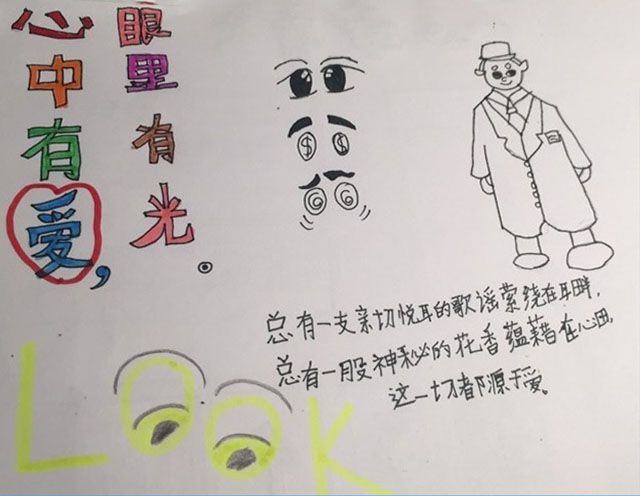 心中有爱，
眼里有光。
总有一支亲切悦耳的歌谣萦绕在耳畔，
总有一股神秘的花香蕴藉在心田，
这一切都源于爱。
LOOK